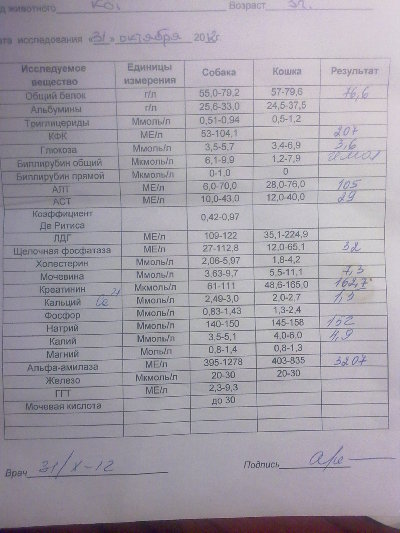 животного Кот Возраст 3 г.
исследования «31» октября 2012г.
Исследуемое вещество Единицы измерения Собака Кошка Результат
Общий белок г/л 55,0-79,2 57-79,6 76,6
Альбумины г/л 25,6-33,0 24,5-37,5
Триглицериды Ммоль/л 0,51-0,94 0,5-1,2
КФК МЕ/л 53-104,1 207
Глюкоза Ммоль/л 3,5-5,7 3,4-6,9 3,6
Биллирубин общий Мкмоль/л 6,1-9,9 1,2-7,9 гемол
Биллирубин прямой Мкмоль/л 0-1,0 0
АЛТ МЕ/л 6,0-70,0 28,0-76,0 105
АСТ МЕ/л 10,0-43,0 12,0-40,0 29
Коэффициент
Де Ритиса 0,42-0,97
ЛДГ МЕ/л 109-122 35,1-224,9
Щелочная фосфатаза МЕ/л 27-112,8 12,0-65,1 32
Холестерин Ммоль/л 2,06-5,97 1,8-4,2
Мочевина Ммоль/л 3,63-9,7 5,5-11,1 7,3
Креатинин Мкмоль/л 61-111 48,6-165,0 162,7
Кальций Ммоль/л 2,49-3,0 2,0-2,7 1,3
Фосфор Ммоль/л 0,83-1,43 1,3-2,4
Натрий Ммоль/л 140-150 145-158 152
Калий Ммоль/л 3,5-5,1 4,0-6,0 4,9
Магний Моль/л 0,8-1,4 0,8-1,3
Альфа-амилаза МЕ/л 395-1278 403-835 3207
Железо Мкмоль/л 20-30 20-30
ГГТ МЕ/л 2,3-9,3
Мочевая кислота до 30
Врач 31/X-12 Подпись